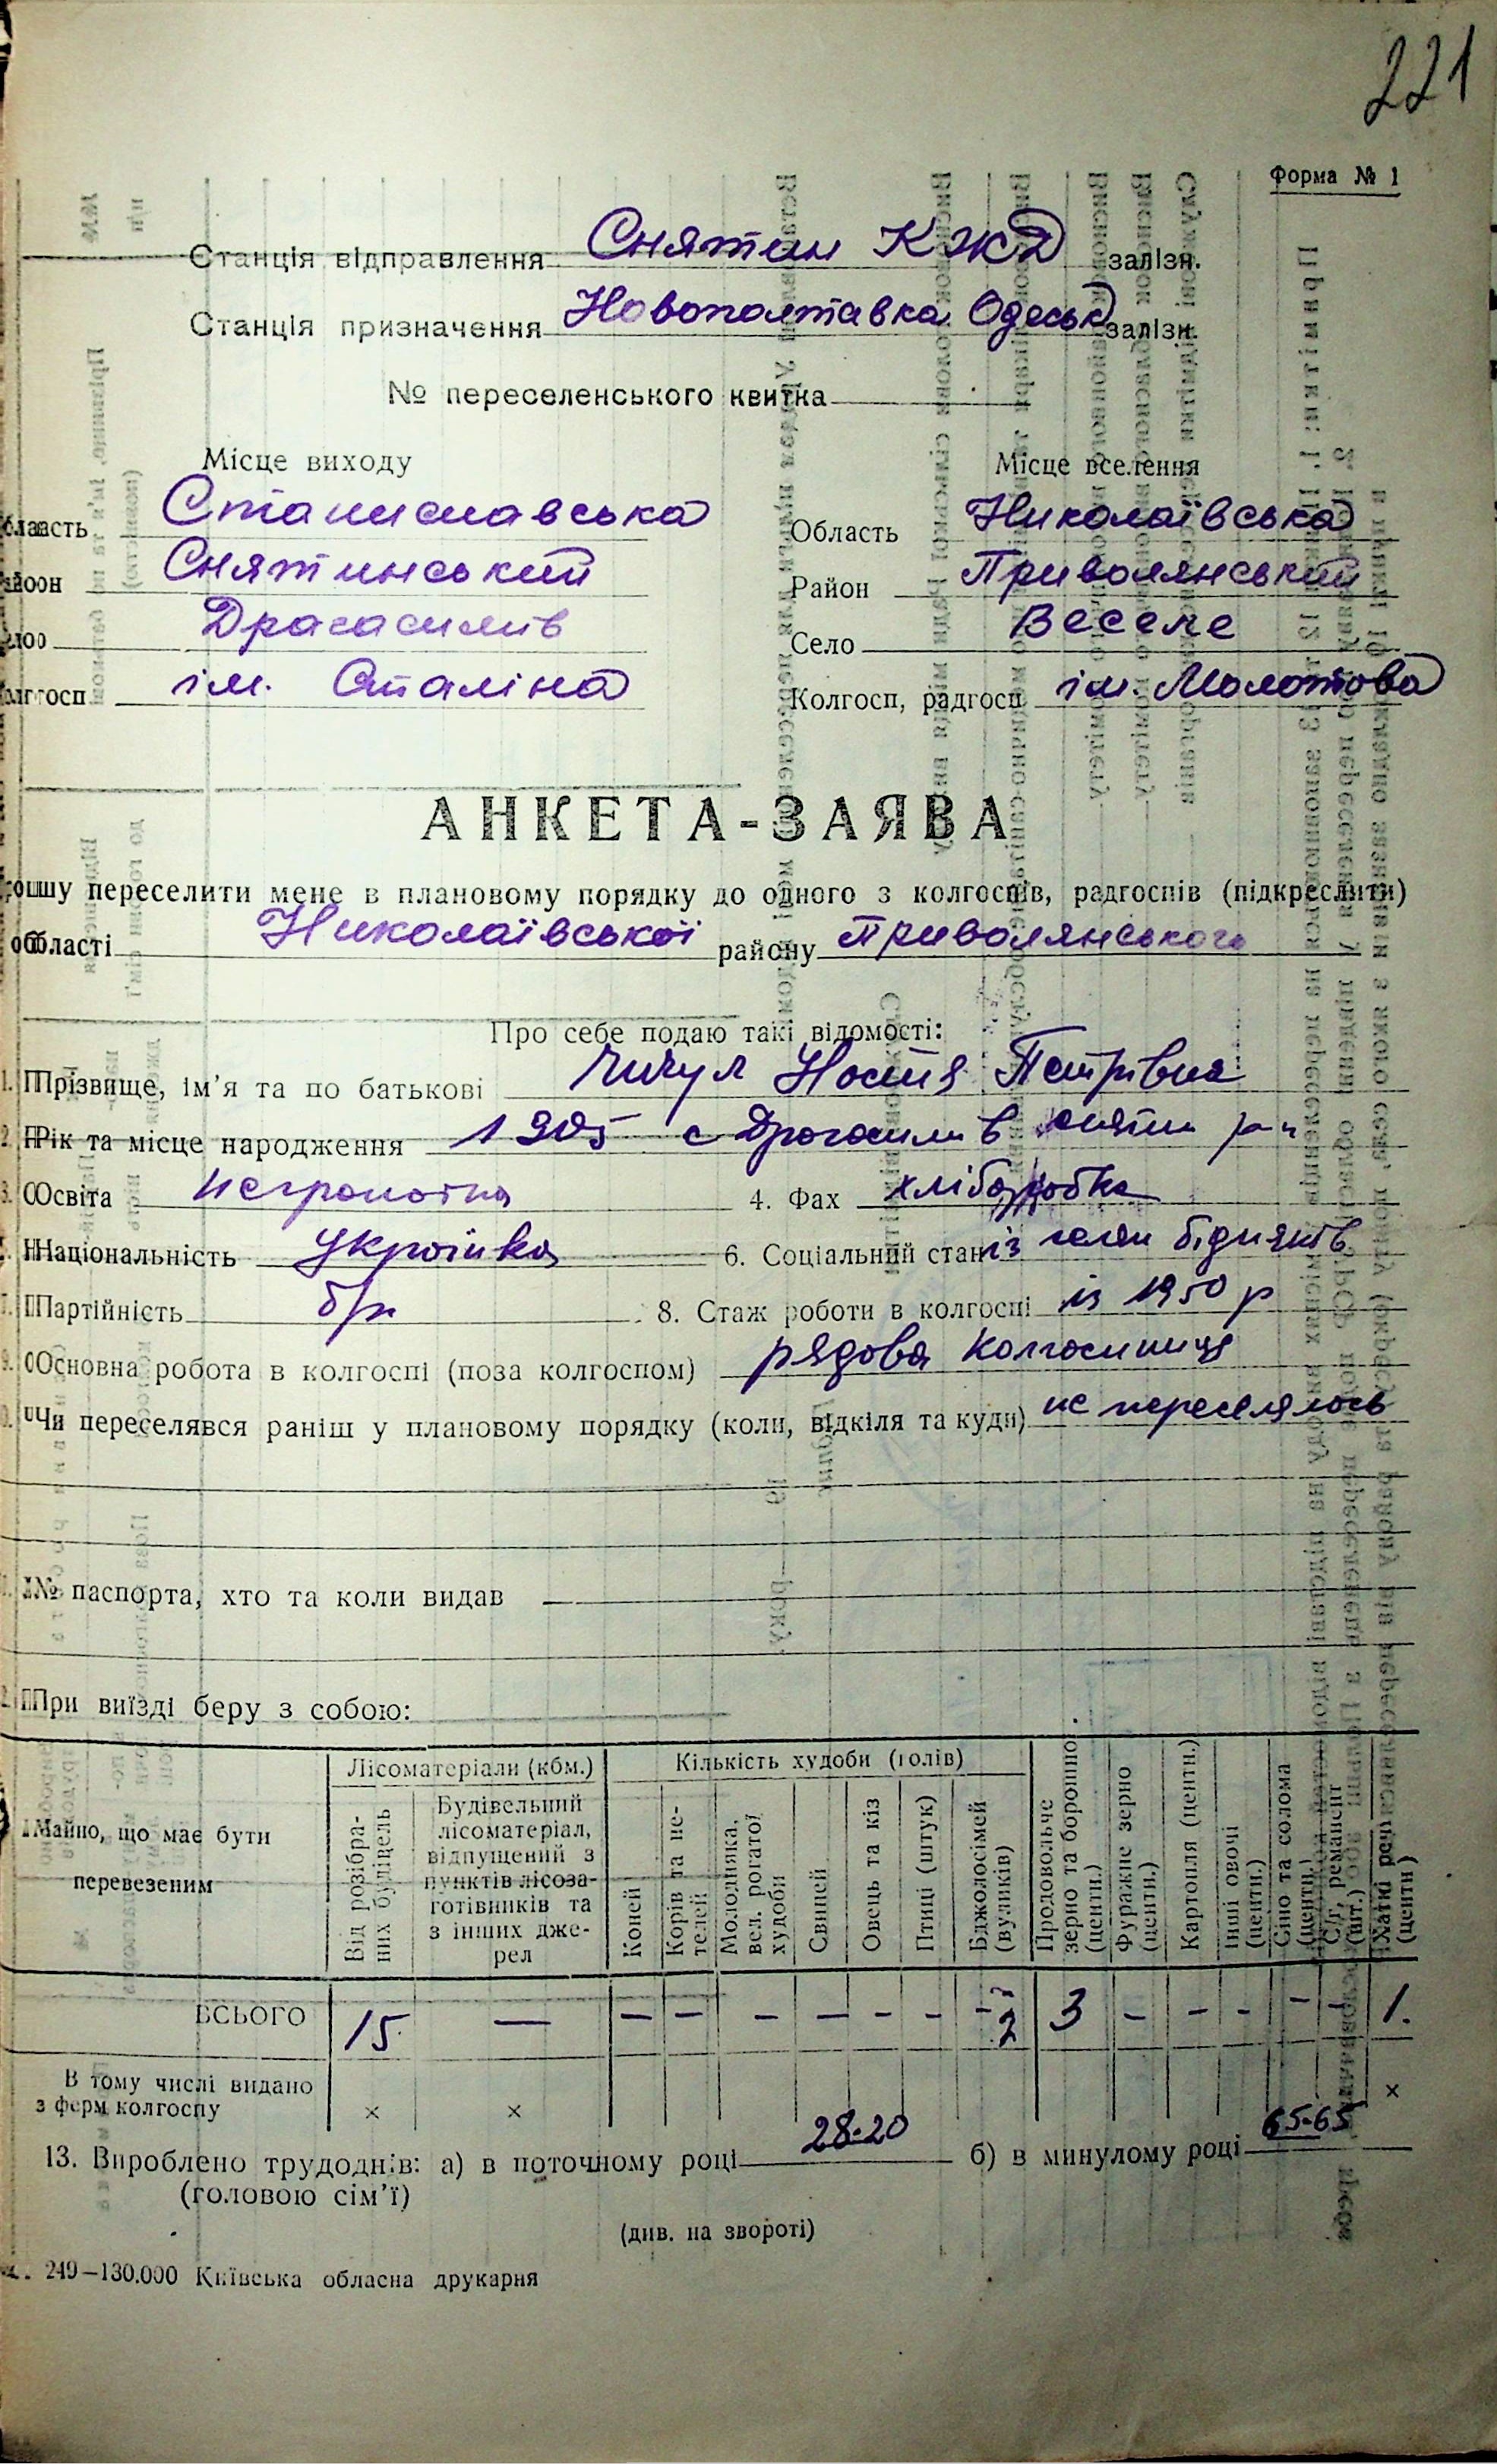 221
Форма № 1
Станція відправлення Снятин КЖД залізн.
Станція призначення Новополтавка Одеськ залізн.
№ переселенського квитка
Місце виходу
Місце вселення
Область Станиславська
Область Николаївська
Район Снятинський
Район Приволянський
Село Драгасимів
Село Веселе
Колгосп ім. Сталіна
Колгосп, радгосп ім. Молотова
АНКЕТА-ЗАЯВА
Прошу переселити мене в плановому порядку до одного з колгоспів, радгоспів (підкреслити)
області Николаївської району Приволянського
Про себе подаю такі відомості:
1. Прізвище, ім'я та по батькові Настя Петрівна
2. Рік та місце народження 1905 с Драгасимів снятин р-н
3. Освіта неграмотна 4. Фах хліборобка
Національність Українка 6. Соціальний стан із селян бідняків
Партійність б/п 8. Стаж роботи в колгоспі із 1950 р
Основна робота в колгоспі (поза колгоспом) рядова колгоспниця
Чи переселявся раніш у плановому порядку (коли, відкіля та куди) не переселялась
№ паспорта, хто та коли видав
При виїзді беру з собою:
Майно, що має бути перевезеним
Лісоматеріали (кбм.)
Кількість худоби (голів)
Від розібраних будівель
Будівельний лісоматеріал, відпущений з пунктів лісозаготівників та з інших джерел
Коней
Корів та нетелей
Молодняка, вел. рогатої худоби
Свиней
Овець та кіз
Птиці (штук)
Бджолосімей (вуликів)
Продовольче зерно та борошно (центн.)
Фуражне зерно (центн.)
Картопля (центн.)
Інші овочі (центн.)
Сіно та солома (центн.)
С/г, реманент (шт.)
Хатні речі (центн)
ВСЬОГО 15 — — — — — — — 2 3 — — — — — 1.
В тому числі видано
з ферм колгоспу × × ×
13. Вироблено трудоднів: а) в поточному році 28-20 б) в минулому році 65-65
(головою сім'ї)
(див. на звороті)
249—130.000 Київська обласна друкарня